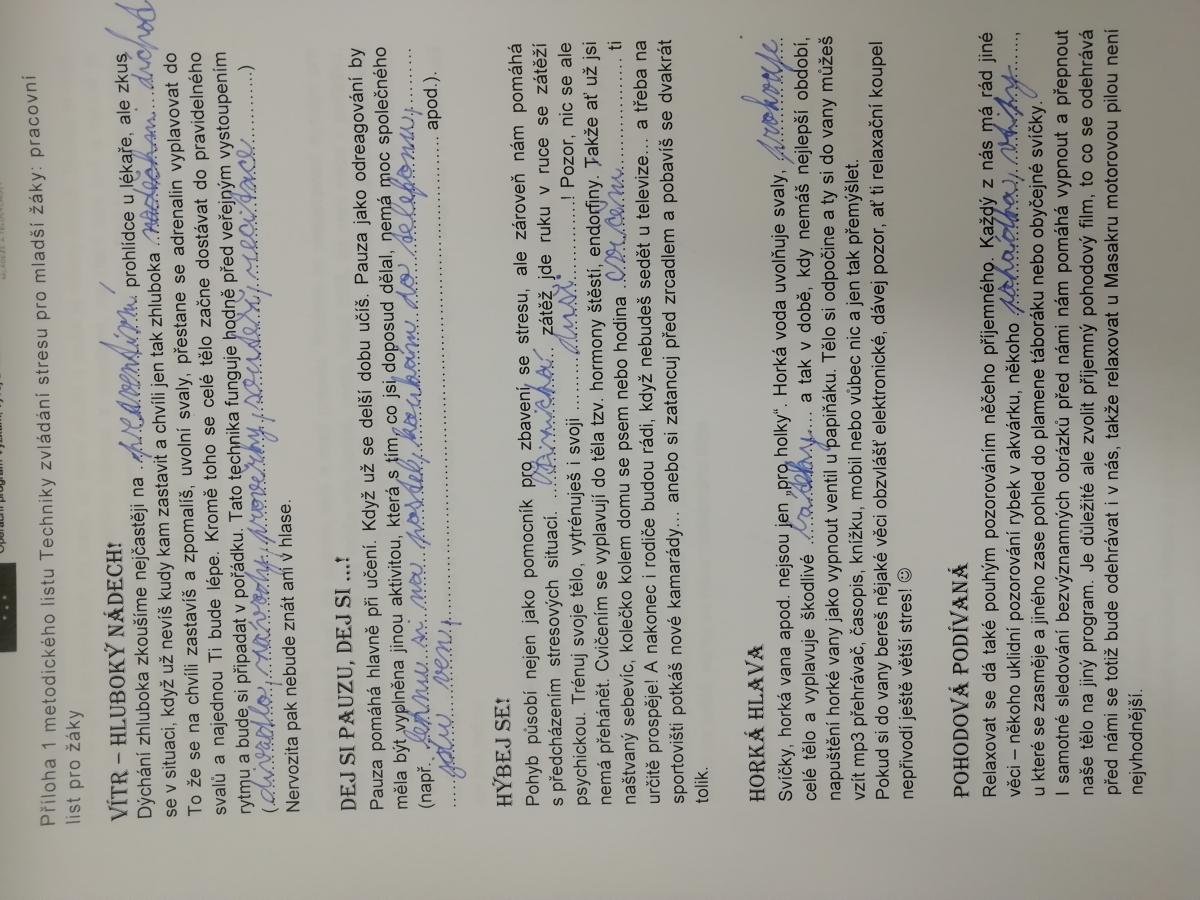 Operační program
Příloha 1 metodického listu Techniky zvládání stresu pro mladší žáky: pracovní
list pro žáky
VÍTR – HLUBOKÝ NÁDECH!
Dýchání zhluboka zkoušíme nejčastěji na ..preventivní. prohlídce u lékaře, ale zkus
se v situaci, když už nevíš kudy kam zastavit a chvíli jen tak zhluboka ..nádech... dychat
To že se na chvíli zastavíš a zpomalíš, uvolní svaly, přestane se adrenalin vyplavovat do
svalů a najednou Ti bude lépe. Kromě toho se celé tělo začne dostávat do pravidelného
rytmu a bude si připadat v pořádku. Tato technika funguje hodně před veřejným vystoupením
(..divadlo, závody, prověrky, soutěž, recitace..........)
Nervozita pak nebude znát ani v hlase.
DEJ SI PAUZU, DEJ SI ...!
Pauza pomáhá hlavně při učení. Když už se delší dobu učíš. Pauza jako odreagování by
měla být vyplněna jinou aktivitou, která s tím, co jsi doposud dělal, nemá moc společného
(např. lehnu si na postel, koukám do telefonu,........
.....jdu ven,........................................................ apod.).
HÝBEJ SE!
Pohyb působí nejen jako pomocník pro zbavení se stresu, ale zároveň nám pomáhá
s předcházením stresových situací. .................. zátěž jde ruku v ruce se zátěží
psychickou. Trénuj svoje tělo, vytrénuješ i svoji ..........duši..........! Pozor, nic se ale
nemá přehánět. Cvičením se vyplavují do těla tzv. hormony štěstí, endorfiny. Takže ať už jsi
naštvaný sebevíc, kolečko kolem domu se psem nebo hodina ..cvičení.................. ti
určitě prospěje! A nakonec i rodiče budou rádi, když nebudeš sedět u televize... a třeba na
sportovišti potkáš nové kamarády... anebo si zatancuj před zrcadlem a pobavíš se dvakrát
tolik.
HORKÁ HLAVA
Svíčky, horká vana apod. nejsou jen „pro holky“. Horká voda uvolňuje svaly, prohřeje..
celé tělo a vyplavuje škodlivé .................. a tak v době, kdy nemáš nejlepší období,
napuštění horké vany jako vypnout ventil u papiňáku. Tělo si odpočine a ty si do vany můžeš
vzít mp3 přehrávač, časopis, knížku, mobil nebo vůbec nic a jen tak přemýšlet.
Pokud si do vany bereš nějaké věci obzvlášť elektronické, dávej pozor, ať ti relaxační koupel
nepřivodí ještě větší stres!☺
POHODOVÁ PODÍVANÁ
Relaxovat se dá také pouhým pozorováním něčeho příjemného. Každý z nás má rád jiné
věci – někoho uklidní pozorování rybek v akvárku, někoho pohádka, vtipy.......,
u které se zasměje a jiného zase pohled do plamene táboráku nebo obyčejné svíčky.
I samotné sledování bezvýznamných obrázků před námi nám pomáhá vypnout a přepnout
naše tělo na jiný program. Je důležité ale zvolit příjemný pohodový film, to co se odehrává
před námi se totiž bude odehrávat i v nás, takže relaxovat u Masakru motorovou pilou není
nejvhodnější.